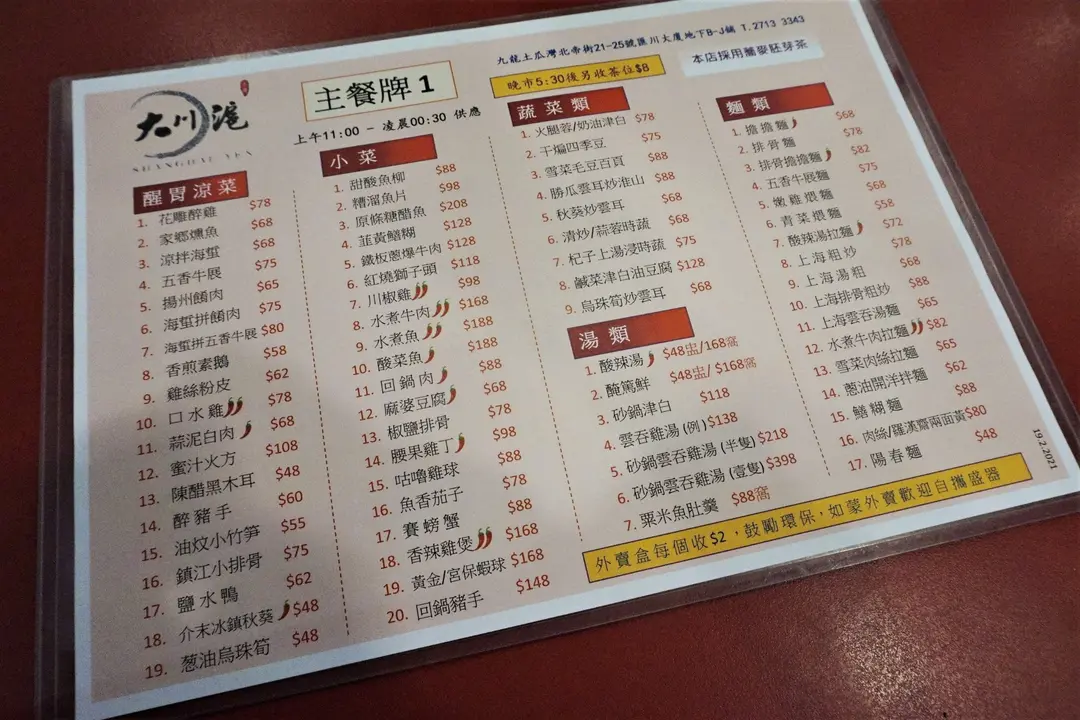 大川滬
SHANGHAI YEN
主餐牌 1
上午11:00 – 凌晨00:30 供應
九龍土瓜灣北帝街21-25號匯川大廈地下B-J鋪 T.2713 3343
晚市5:30後另收茶位$8
本店採用蕎麥胚芽茶
醒胃涼菜
1. 花雕醉雞 $78
2. 家鄉燻魚 $68
3. 涼拌海蜇 $68
4. 五香牛展 $75
5. 揚州餚肉 $65
6. 海蜇拼餚肉 $75
7. 海蜇拼五香牛展 $80
8. 香煎素鵝 $58
9. 雞絲粉皮 $62
10. 口水雞 $78
11. 蒜泥白肉 $68
12. 蜜汁火方 $108
13. 陳醋黑木耳 $48
14. 醉豬手 $60
15. 油炆小竹笋 $55
16. 鎮江小排骨 $75
17. 鹽水鴨 $62
18. 介末冰鎮秋葵 $48
19. 葱油烏珠筍 $48
小菜
1. 甜酸魚柳 $88
2. 糟溜魚片 $98
3. 原條糖醋魚 $208
4. 韮黃鱔糊 $128
5. 鐵板葱爆牛肉 $128
6. 紅燒獅子頭 $118
7. 川椒雞 $98
8. 水煮牛肉 $168
9. 水煮魚 $188
10. 酸菜魚 $188
11. 回鍋肉 $88
12. 麻婆豆腐 $68
13. 椒鹽排骨 $78
14. 腰果雞丁 $98
15. 咕嚕雞球 $88
16. 魚香茄子 $78
17. 賽螃蟹 $88
18. 香辣雞煲 $168
19. 黃金/宮保蝦球 $168
20. 回鍋豬手 $148
蔬菜類
1. 火腿蓉/奶油津白 $78
2. 干煸四季豆 $78
3. 雪菜毛豆百頁 $88
4. 勝瓜雲耳炒淮山 $88
5. 秋葵炒雲耳 $68
6. 清炒/蒜蓉時蔬 $68
7. 杞子上湯浸時蔬 $75
8. 鹹菜津白油豆腐 $128
9. 烏珠筍炒雲耳 $68
湯類
1. 酸辣湯 $48盅/168窩
2. 醃篤鮮 $48盅/ $168窩
3. 砂鍋津白 $118
4. 雲吞雞湯 (例) $138
5. 砂鍋雲吞雞湯 (半隻) $218
6. 砂鍋雲吞雞湯 (壹隻) $398
7. 粟米魚肚羹 $88窩
麵類
1. 擔擔麵 $68
2. 排骨麵 $78
3. 排骨擔擔麵 $82
4. 五香牛展麵 $75
5. 嫩雞煨麵 $68
6. 青菜煨麵 $58
7. 酸辣湯拉麵 $72
8. 上海粗炒 $78
9. 上海湯粗 $68
10. 上海排骨粗炒 $88
11. 上海雲吞湯麵 $65
12. 水煮牛肉拉麵 $82
13. 雪菜肉絲拉麵 $65
14. 蔥油開洋拌麵 $62
15. 鱔糊麵 $88
16. 肉絲/羅漢齋兩面黃 $80
17. 陽春麵 $48
外賣盒每個收$2，鼓勵環保，如蒙外賣歡迎自攜盛器
19.2.2021